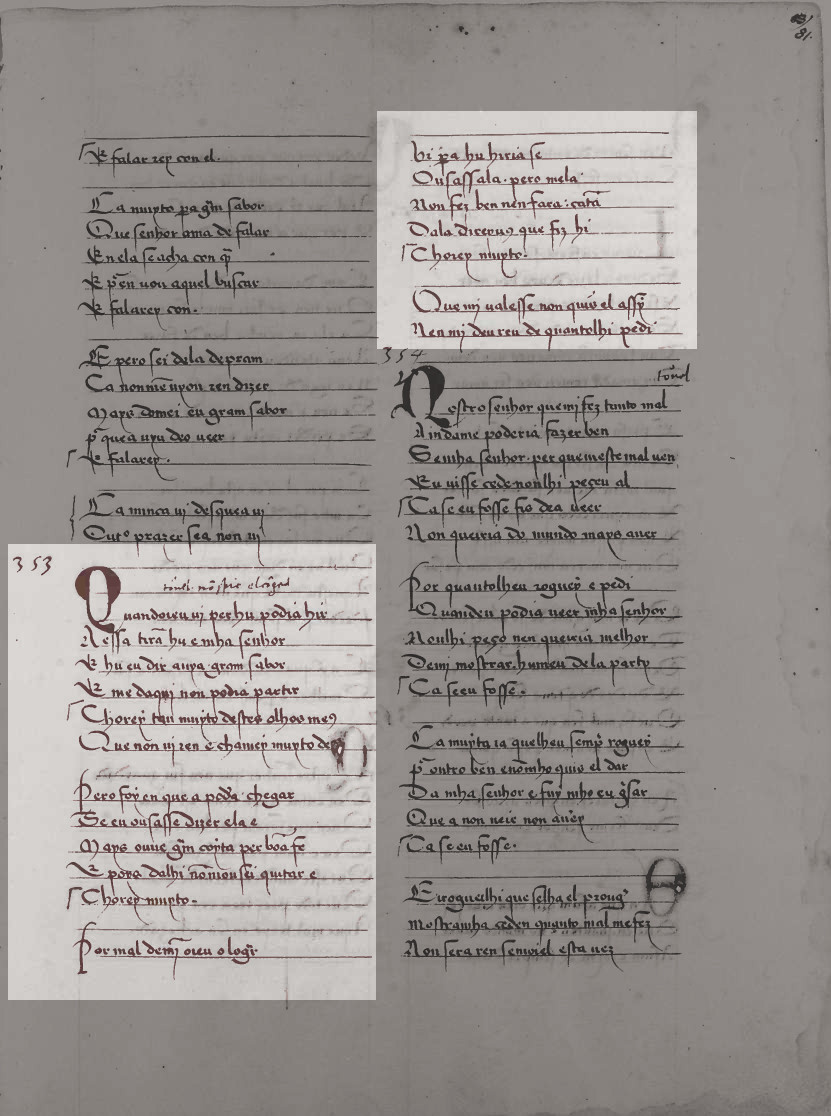 E falar ey con el.
Ca muyto pa grã sabor
Que senhor ama de falar
En ela se acha con q̃
E pēn uou aquel buscar
E falarey con.
E pero sei dela de pram
Ca non mē uyon ren dizer
Mays domei eu gram sabor
E falarey.
Ca nunca ui des que a ui
Out° prazer se a non ui
353
Quandoieu ui per hu podia hir
A essa tirā hu e mha senhor
E hu eu dir auya gram sabor
E me daqui non podia partir
Chorey tan muyto destes olhos me9
Que non ui ren e chamey muyto de9
Pero foy en que a podā chegar
Se eu ousasse dizer ela e
Mays ouue grã coyta per boā fe
E pora dalhi nō mou sei quitar e
Chorey muyto.
Por mal demĩ oieu o logr̃
hi pa hu hiria se
Ousassala. pero mela
Non fez ben nen fara: catā
Dala direuus que fiz hi
Chorey muyto.
Que mj ualesse non quis el assy
Nen mj deu reu de quantolhi pedi
354
tornel
Nostro senhor que mj fez tanto mal
Aindame poderia fazer ben
Semha senhor. per que me este mal uen
Eu uisse cede nonlhi peçeu al
Ca se eu fosse fis dea ueer
Non queiria do mundo mays auer
Por quantolheu roguey e pedi
Quandeu podia ueer mha senhor
Neulhi peço nen queiria melhor
Demj mostrar. humeu dela party
Ca se eu fosse.
Ca muyta ia quelheu semp̃ roguey
p̃ outro ben enōmho quis el dar
Da mha senhor e fuy mho eu g̃sar
Que a non ueie non auey
Ca se eu fosse.
E rroguelhi que selha el proug'
Mostramha ceden quanto mal me fez
Non sera ren senwiel esta uez